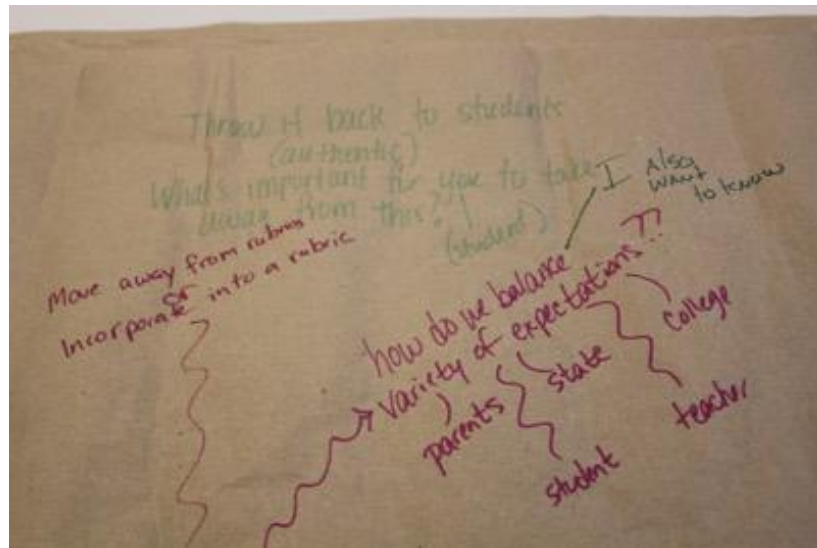 Throw it back to students
(authentic)
What's important for you to take
away from this?
(student)
I Also
want
to know
Move away from rubrics
or
Incorporate into a rubric
how do we balance
variety of expectations??
parents
student
state
teacher
college